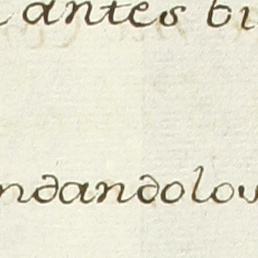 antes bi
ndandolov